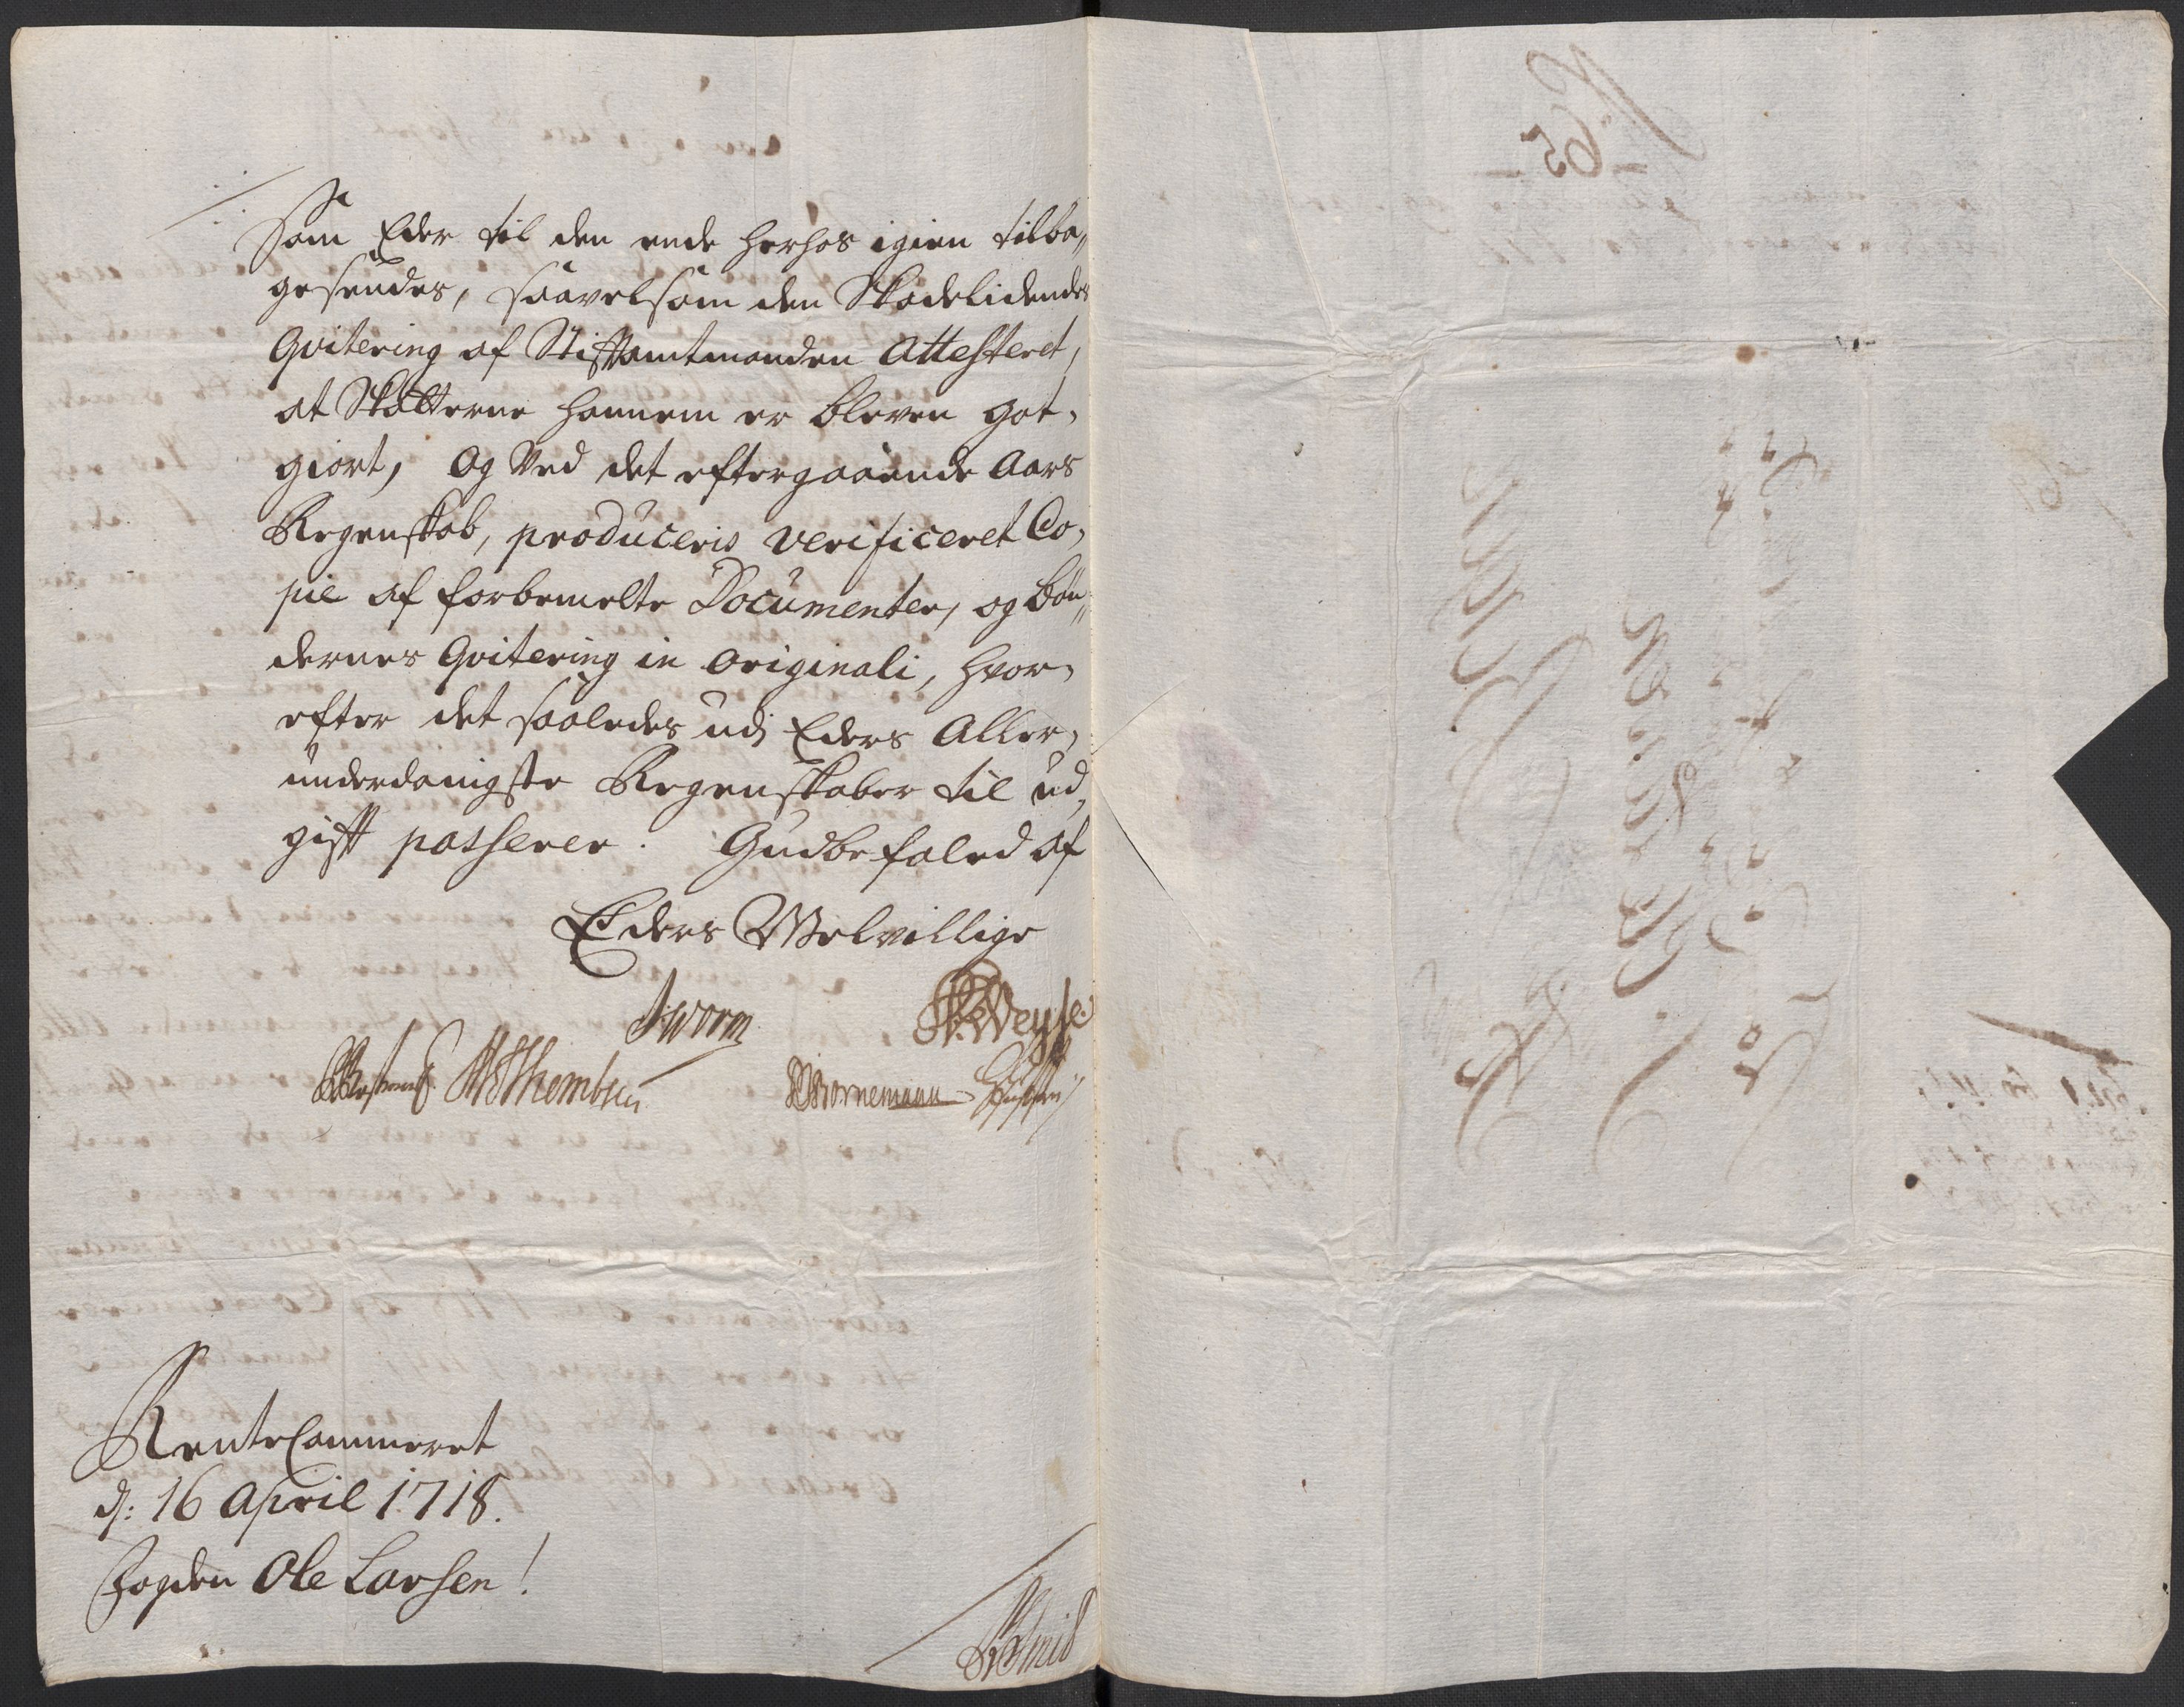 Som Eder til den ende herhos igien tilba„
gesendes, saavelsom den Skadelidendes
Qvitering af Stiftamtmanden Attesteret,
at Skatterne hannem er bleven got„
giort, Og Ved det eftergaaende Aars
Regenskab, produceris Verificeret Co„
pie af forbemelte Documenter, og bøn„
dernes Qvitering in Originali, hvor„
efter det saaledes udj Eders Aller„
underdanigste Regenskaber til ud„
gift passerer. Gudbefaled af
Eders Velvillige
Worm Weyse
Bornemann
RenteCammeret
d: 16 April 1718.
Fogden Ole Larsen!
65